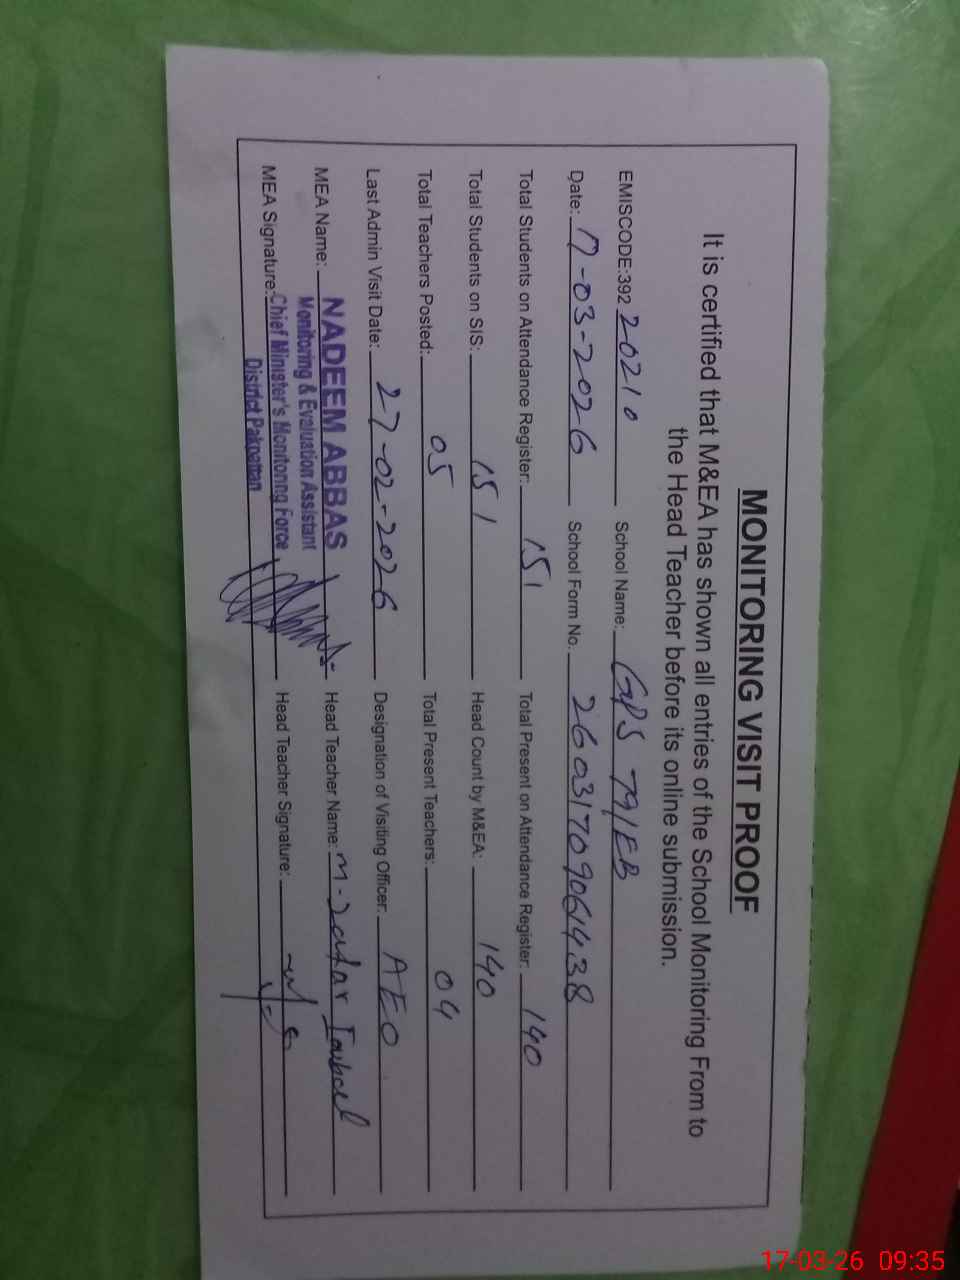 MONITORING VISIT PROOF
It is certified that M&EA has shown all entries of the School Monitoring From to
the Head Teacher before its online submission.
EMISCODE:392 20210 School Name: GPS 79/EB
Date: 17-03-2026 School Form No. 26031709061438
Total Students on Attendance Register: 151 Total Present on Attendance Register: 140
Total Students on SIS: 151 Head Count by M&EA: 140
Total Teachers Posted: 05 Total Present Teachers: 04
Last Admin Visit Date: 27-02-2026 Designation of Visiting Officer: AEO
MEA Name: NADEEM ABBAS Head Teacher Name: M-
Monitoring & Evaluation Assistant
MEA Signature: Chief Minister's Monitoring Force Head Teacher Signature:
District Pakpattan
17-03-26 09:35